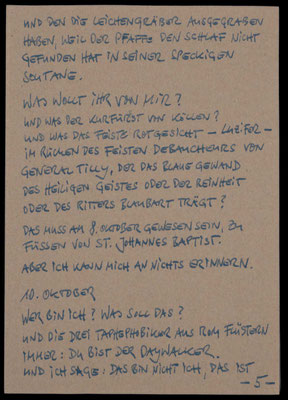 UND DEN DIE LEICHENGRÄBER AUSGEGRABEN
HABEN, WEIL DER PFAFFE DEN SCHLAF NICHT
GEFUNDEN HAT IN SEINER SPECKIGEN
SOUTANE.
WAS WOLLT IHR VON MIR?
UND WAS DER KURFÜRST VON KÖLLEN?
UND WAS DAS FEISTE ROTGESICHT – LUZIFER –
IM RÜCKEN DES FEISTEN DEBAUCHEURS VON
GENERAL TILLY, DER DAS BLAUE GEWAND
DES HEILIGEN GEISTES ODER DER REINHEIT
ODER DES RITTERS BLAUBART TRÄGT?
DAS MUSS AM 8. OKTOBER GEWESEN SEIN, ZU
FÜSSEN VON ST. JOHANNES BAPTIST.
ABER ICH KANN MICH AN NICHTS ERINNERN.
10. OKTOBER
WER BIN ICH? WAS SOLL DAS?
UND DIE DREI TAPHEPHOBIKER AUS ROM FLÜSTERN
IMMER: DU BIST DER DAYWALKER.
UND ICH SAGE: DAS BIN NICHT ICH, DAS IST
– 5 –